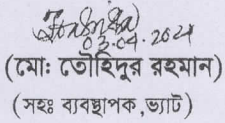 03.04.2024
(মোঃ তৌহিদুর রহমান)
(সহঃ ব্যবস্থাপক,ভ্যাট)